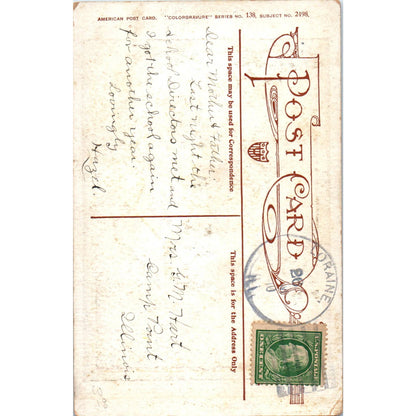 AMERICAN POST CARD. "COLORGRAVURE" SERIES NO. 138, SUBJECT NO. 2498.
POST CARD
This space may be used for Correspondence
This space is for the Address Only
Dear Mother & Father:
Last night the
School Directors met and
I got the school again
for another year.
Lovingly
Hazel.
Mrs. G. M. Hart
Camp Point
Illinois
LORAINE
ILL
U.S. POSTAGE
ONE CENT